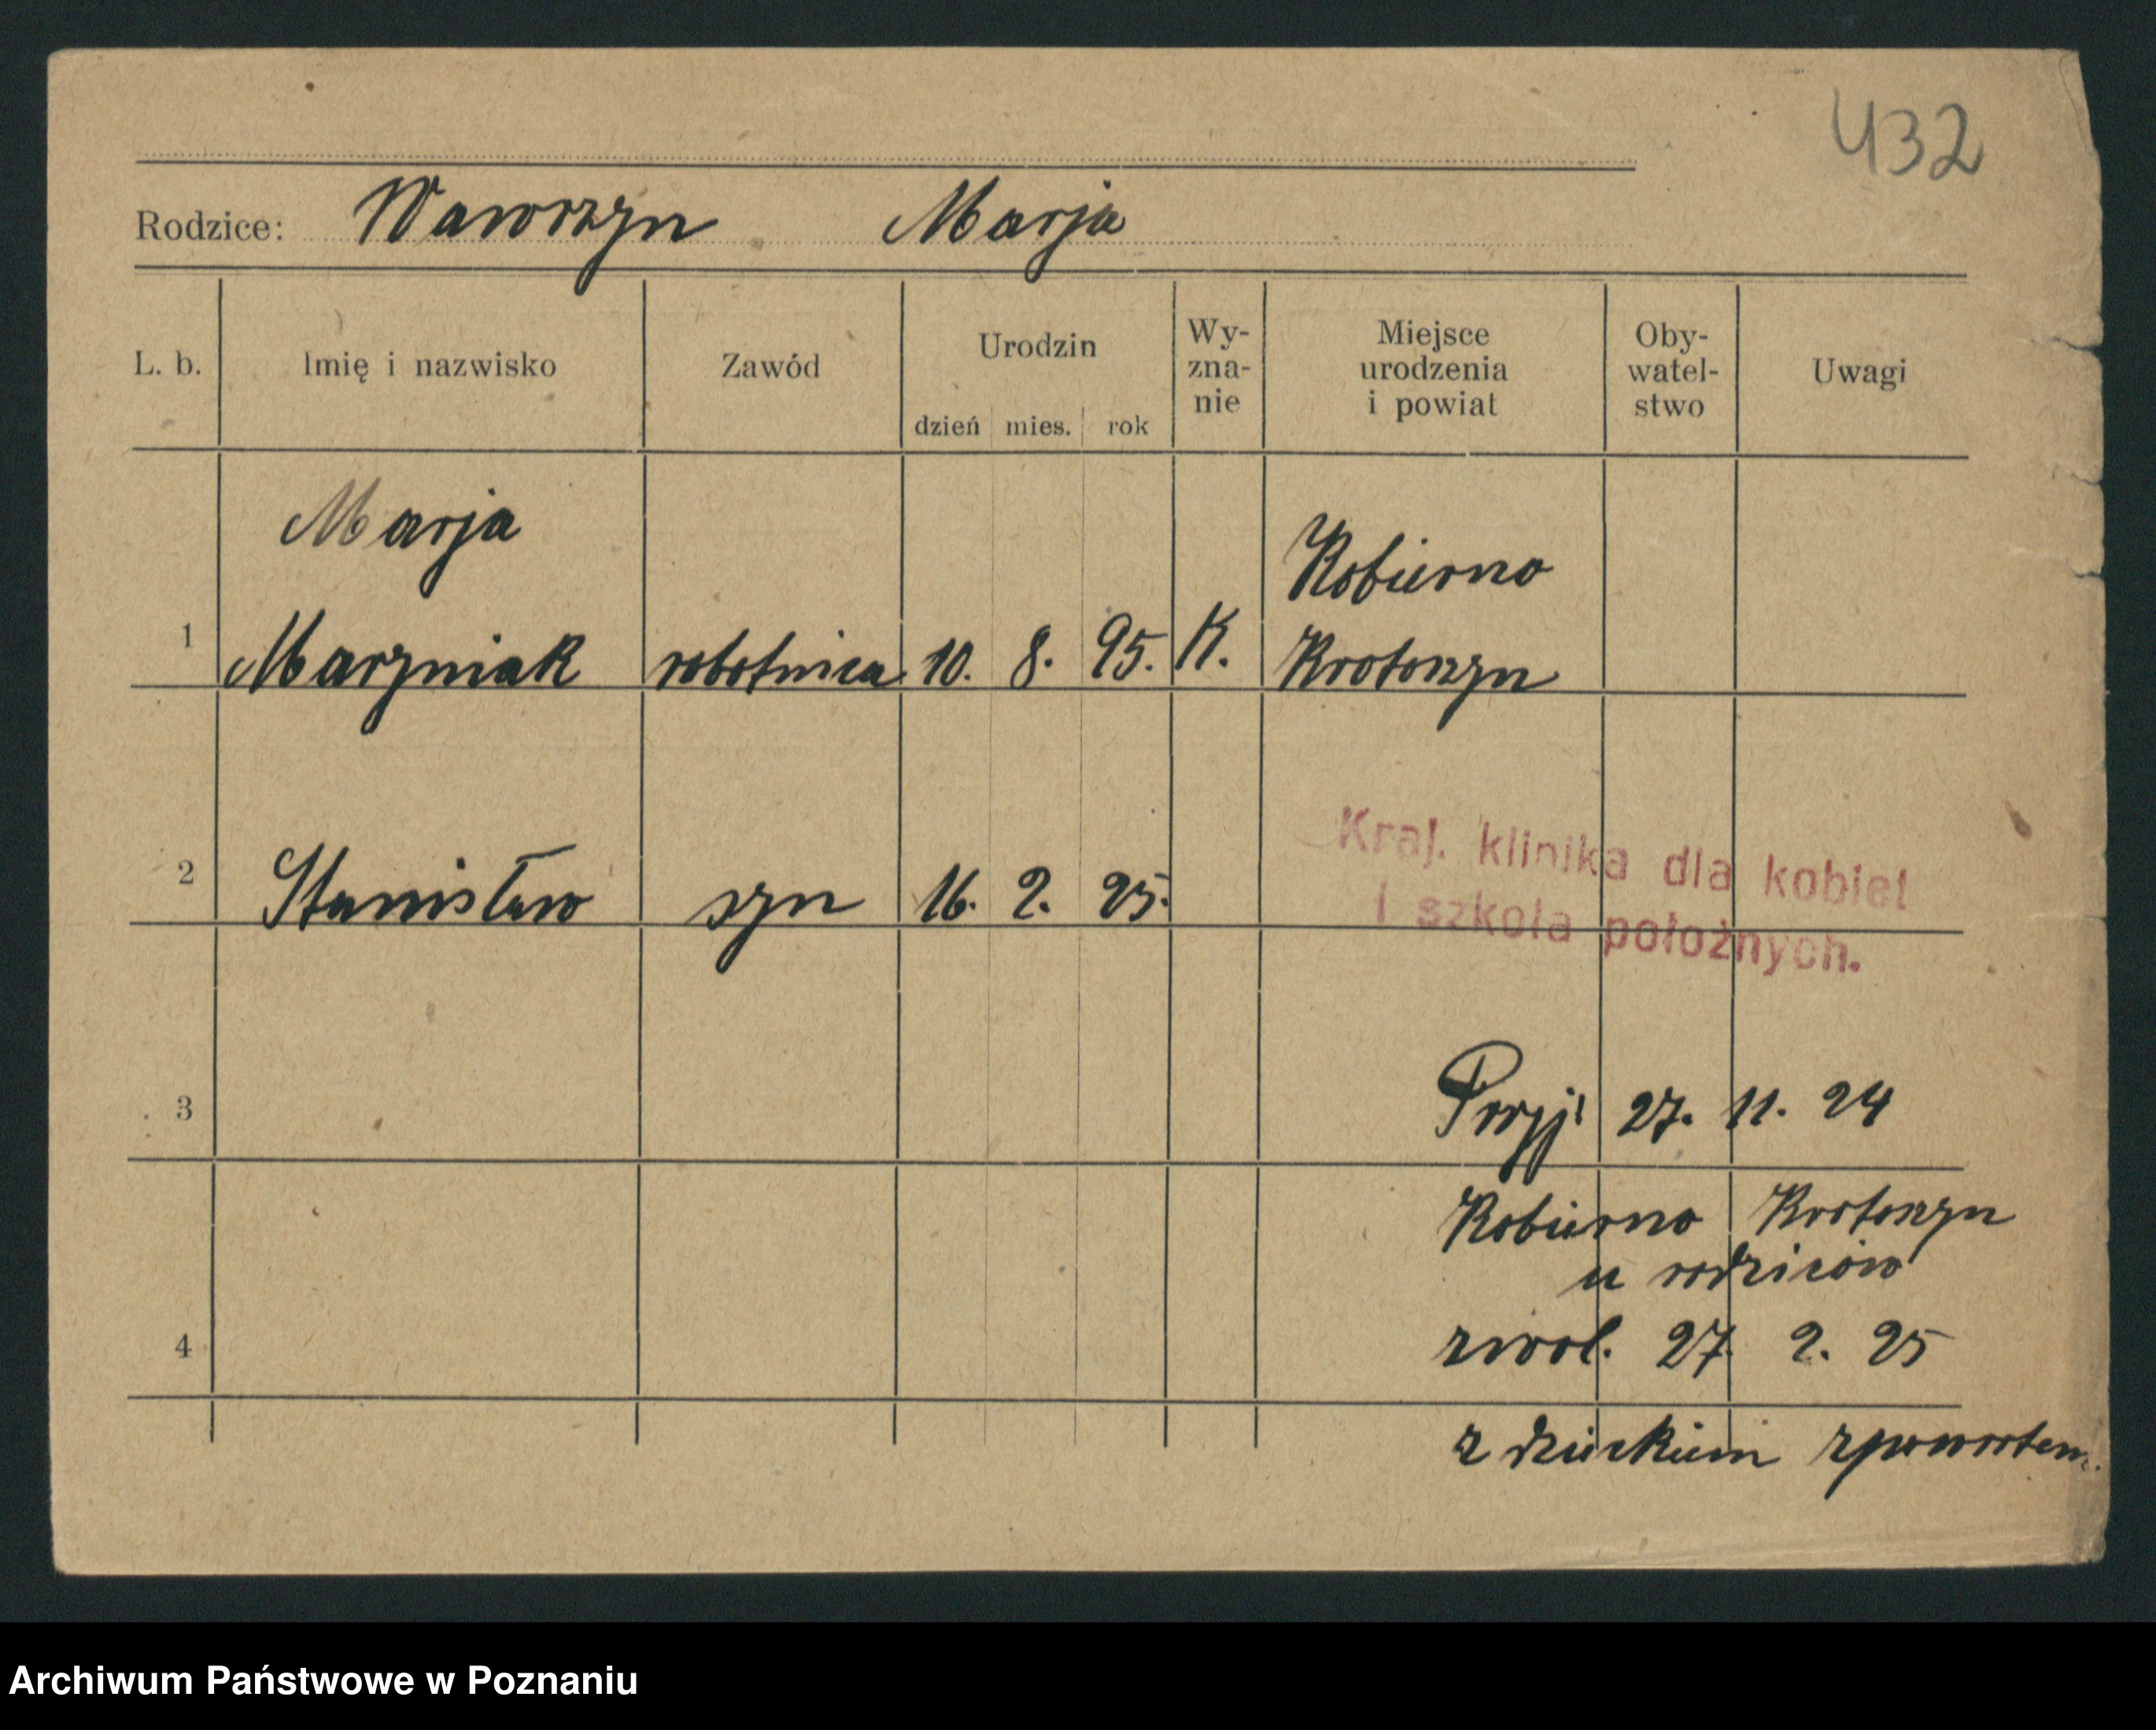 432
Rodzice: Wawrzyn Marja
L. b. Imię i nazwisko Zawód Urodzin dzień mies. rok Wy-zna-nie Miejsce urodzenia i powiat Oby-watel-stwo Uwagi
Marja
Kobierno
1 Marzniak robotnica 10. 8. 95. K. Krotoszyn
2 Stanisław syn 16. 2. 25.
Kraj. klinika dla kobiet
i szkoła położnych.
3
Przyj. 27. 11. 24
Kobierno Krotoszyn
u rodziców
4
zwol. 27. 2. 25
z dzieckiem zpowrotem.
Archiwum Państwowe w Poznaniu